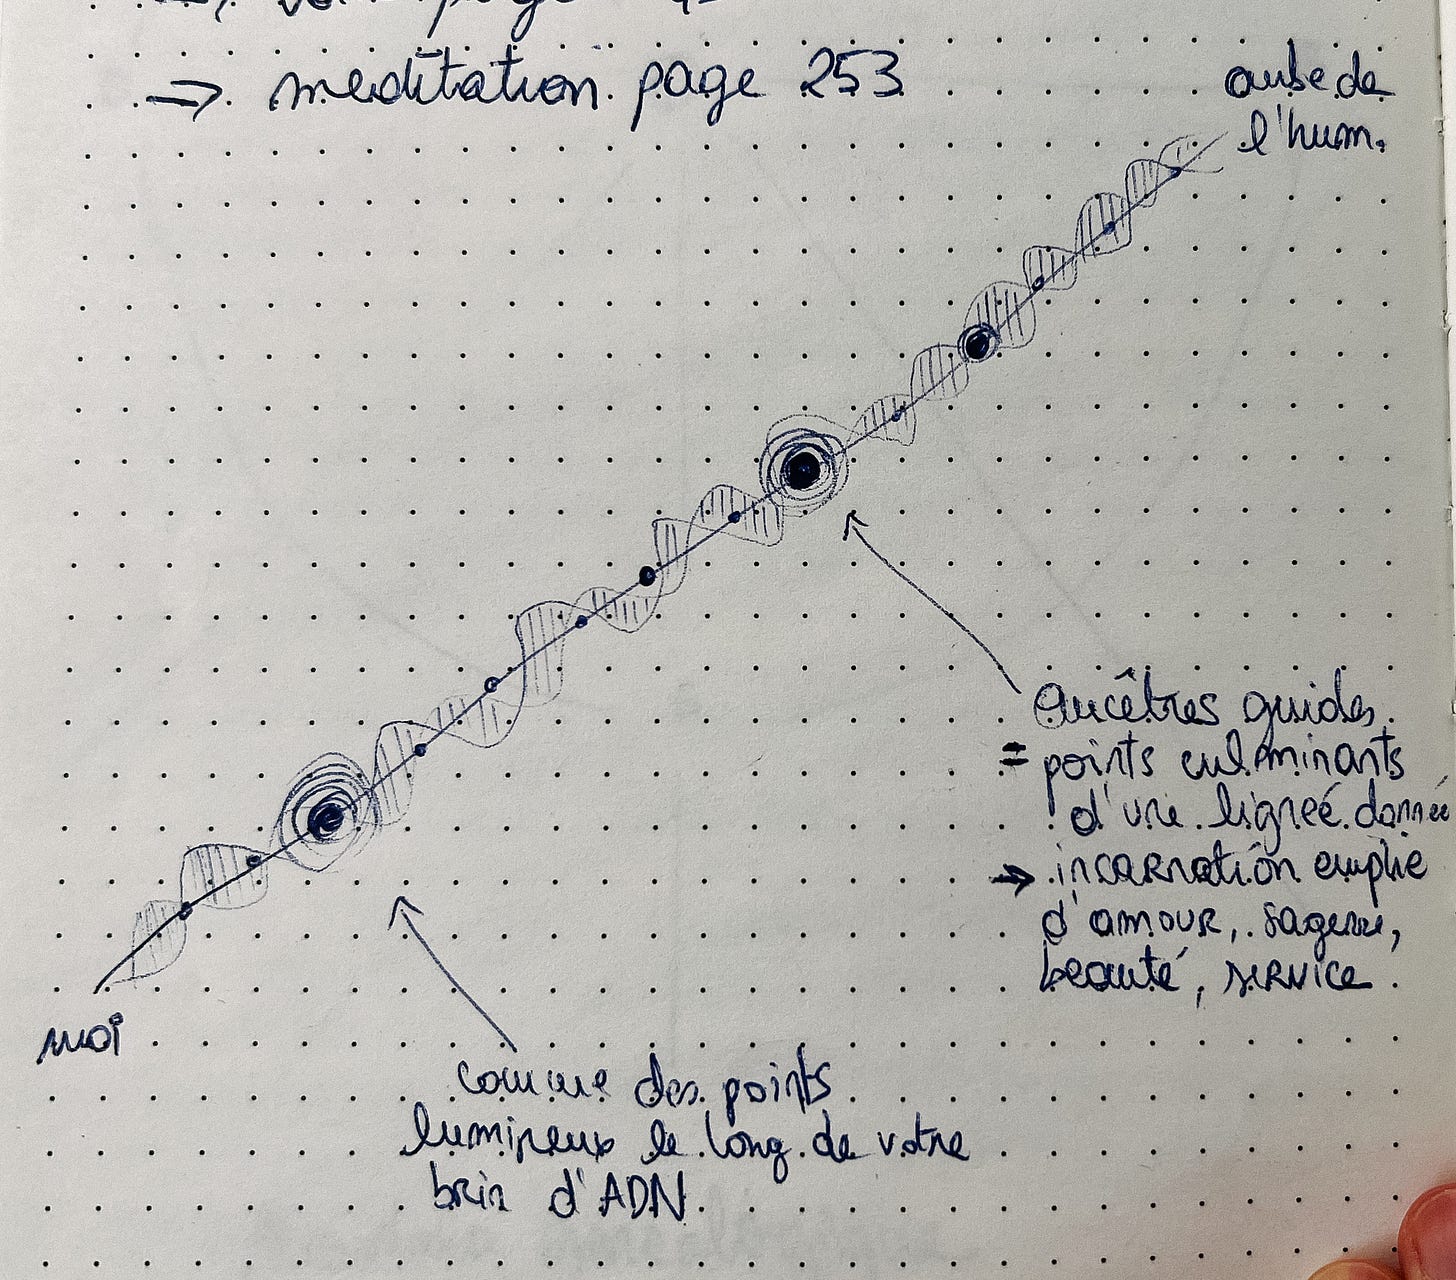 page
⇒ méditation page 253
aube de
l'hum.
Ancêtres guides
= points culminants
d'une lignée donnée
→ incarnation emplie
d'amour, sagesse,
beauté, service.
moi
comme des points
lumineux le long de votre
brin d'ADN